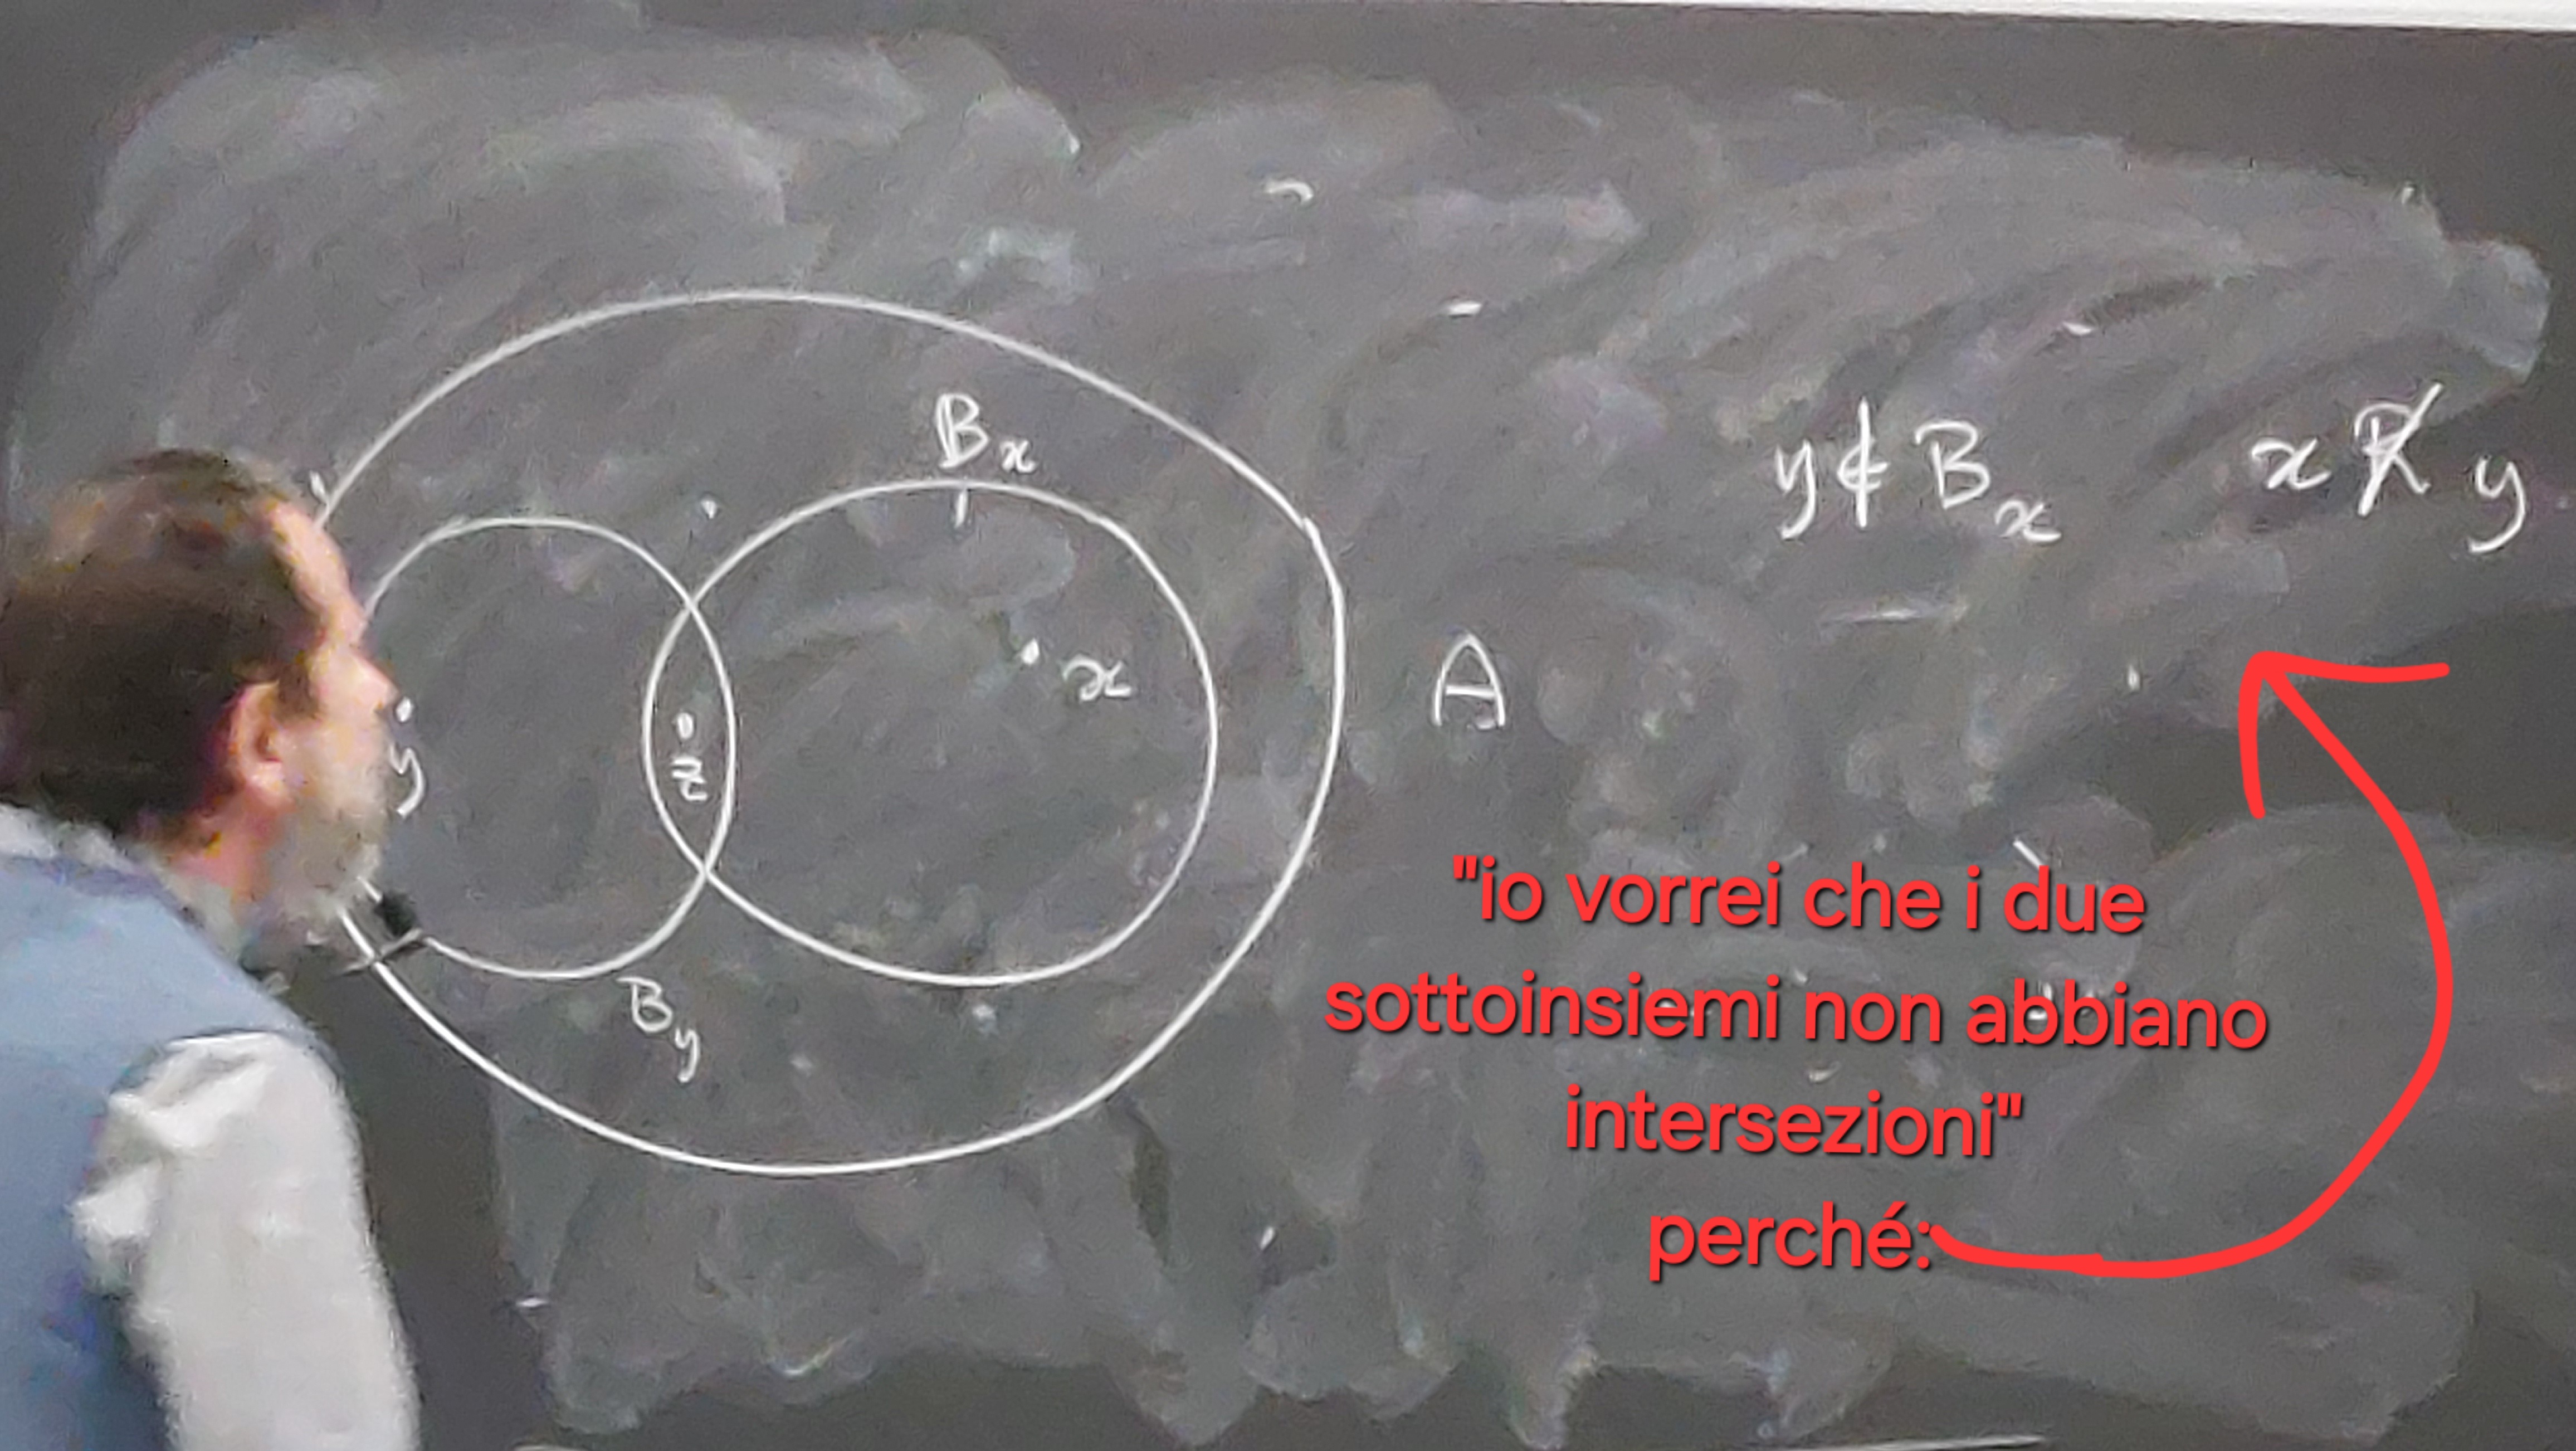 B_x
y ∉ B_x x R̸ y
x
A
y
z
B_y
"io vorrei che i due
sottoinsiemi non abbiano
intersezioni"
perché: